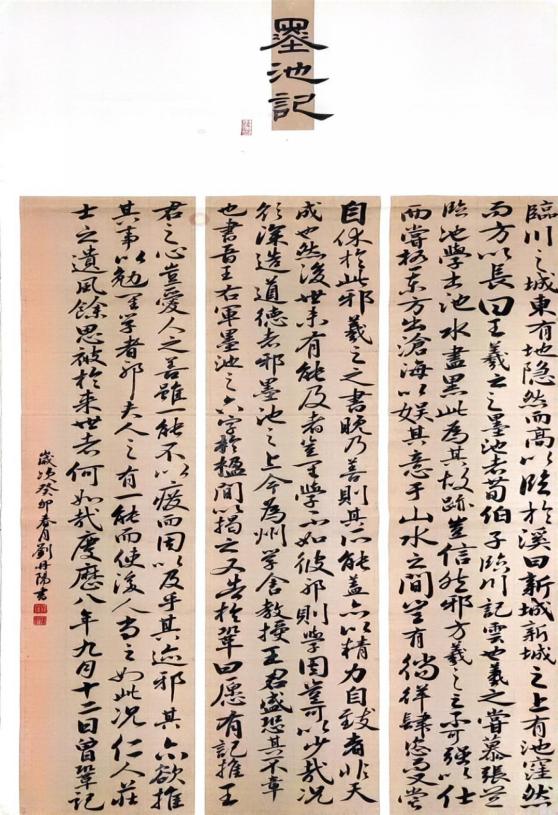 墨池記
臨川之城東有地隐然而高以臨於溪曰新城新城之上有池窪然
而方以長曰王羲之之墨池者荀伯子臨川記雲也羲之嘗慕張芝
臨池學書池水盡黑此為其故跡豈信然邪方羲之之不可強以仕
而嘗極東方出滄海以娛其意于山水之間豈有徜徉肆恣而又嘗
自休於此邪羲之之書晚乃善則其所能蓋亦以精力自致者非天
成也然後世未有能及者豈其學不如彼邪則學固豈可以少哉況
欲深造道德者邪墨池之上今為州學舍教授王君盛恐其不章
也書晉王右軍墨池之六字於楹間以揭之又告於鞏曰愿有記推王
君之心豈愛人之善雖一能不以廢而因以及乎其迹邪其亦欲推
其事以勉其學者邪夫人之有一能而使後人尚之如此況仁人莊
士之遺風餘思被於来世者何如哉慶歷八年九月十二日曾鞏記
歲次癸卯春月劉丹陽書